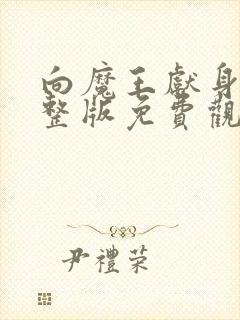 向魔王獻身
整版免費觀
尹禮荣